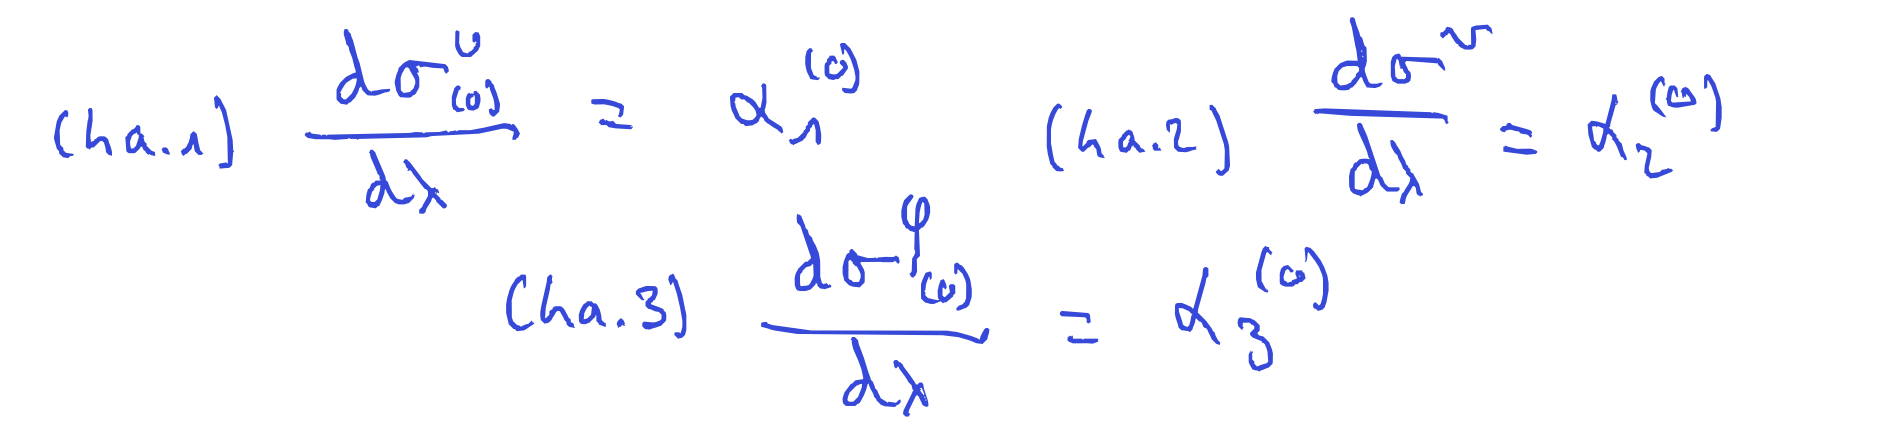 (ha.1) dσ^u_(0)/dλ = α_1^(0) (ha.2) dσ^v/dλ = α_2^(0)
(ha.3) dσ^φ_(0)/dλ = α_3^(0)